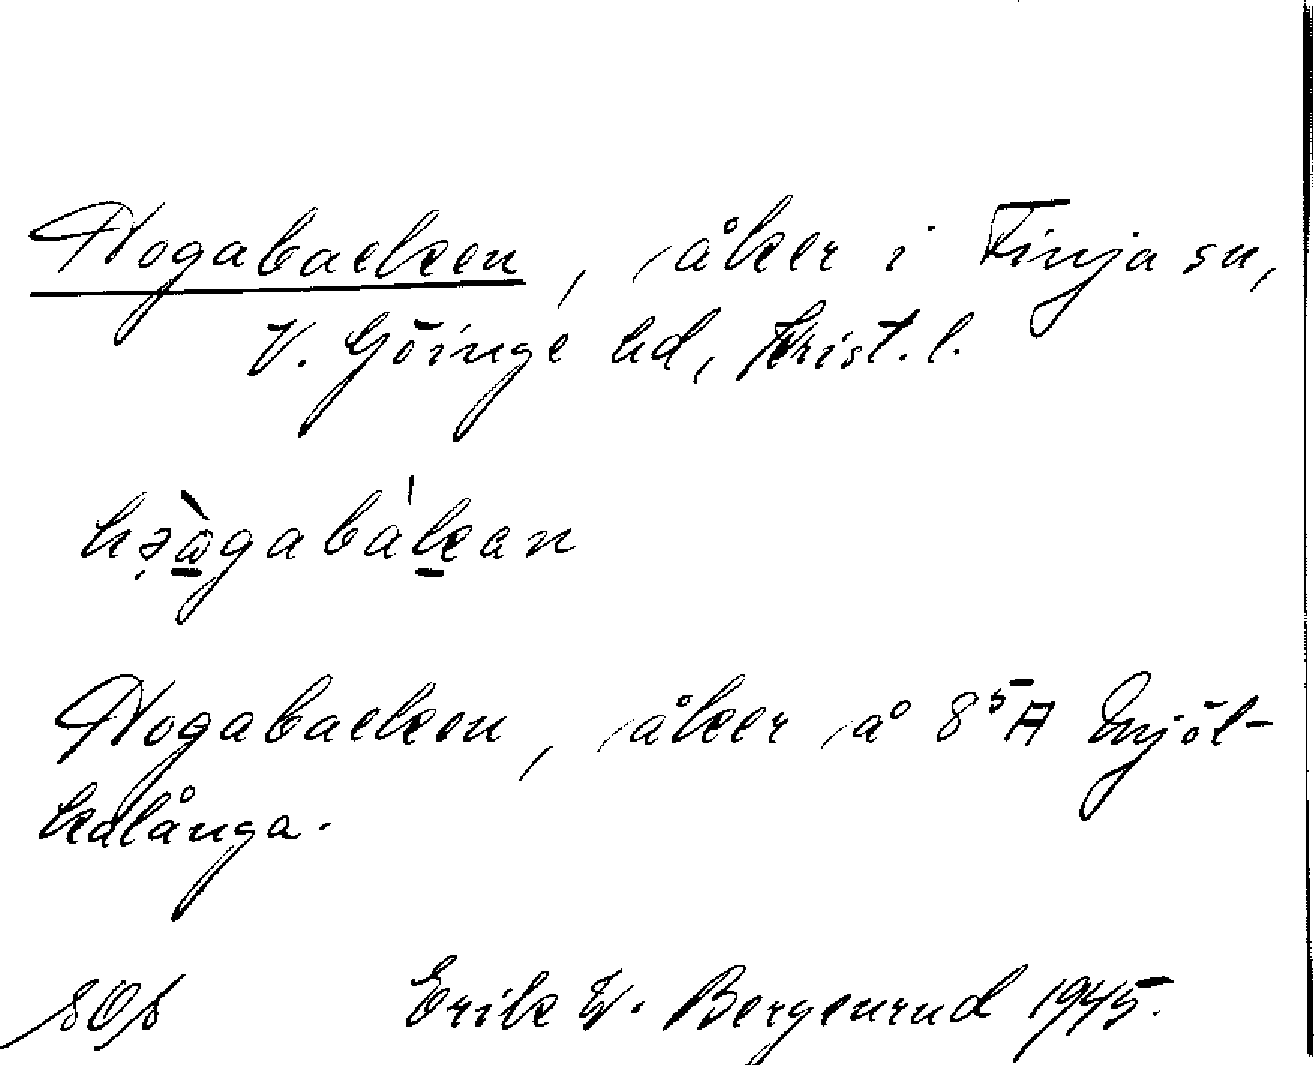 Hogabacken, åker i Finja sn,
V. Göinge hd, Krist. l.
hə̣ὼgabàkan
Hogabacken, åker å 8⁵A Mjöl-
kalånga.
SOS Erik W. Bergenrud 1945.